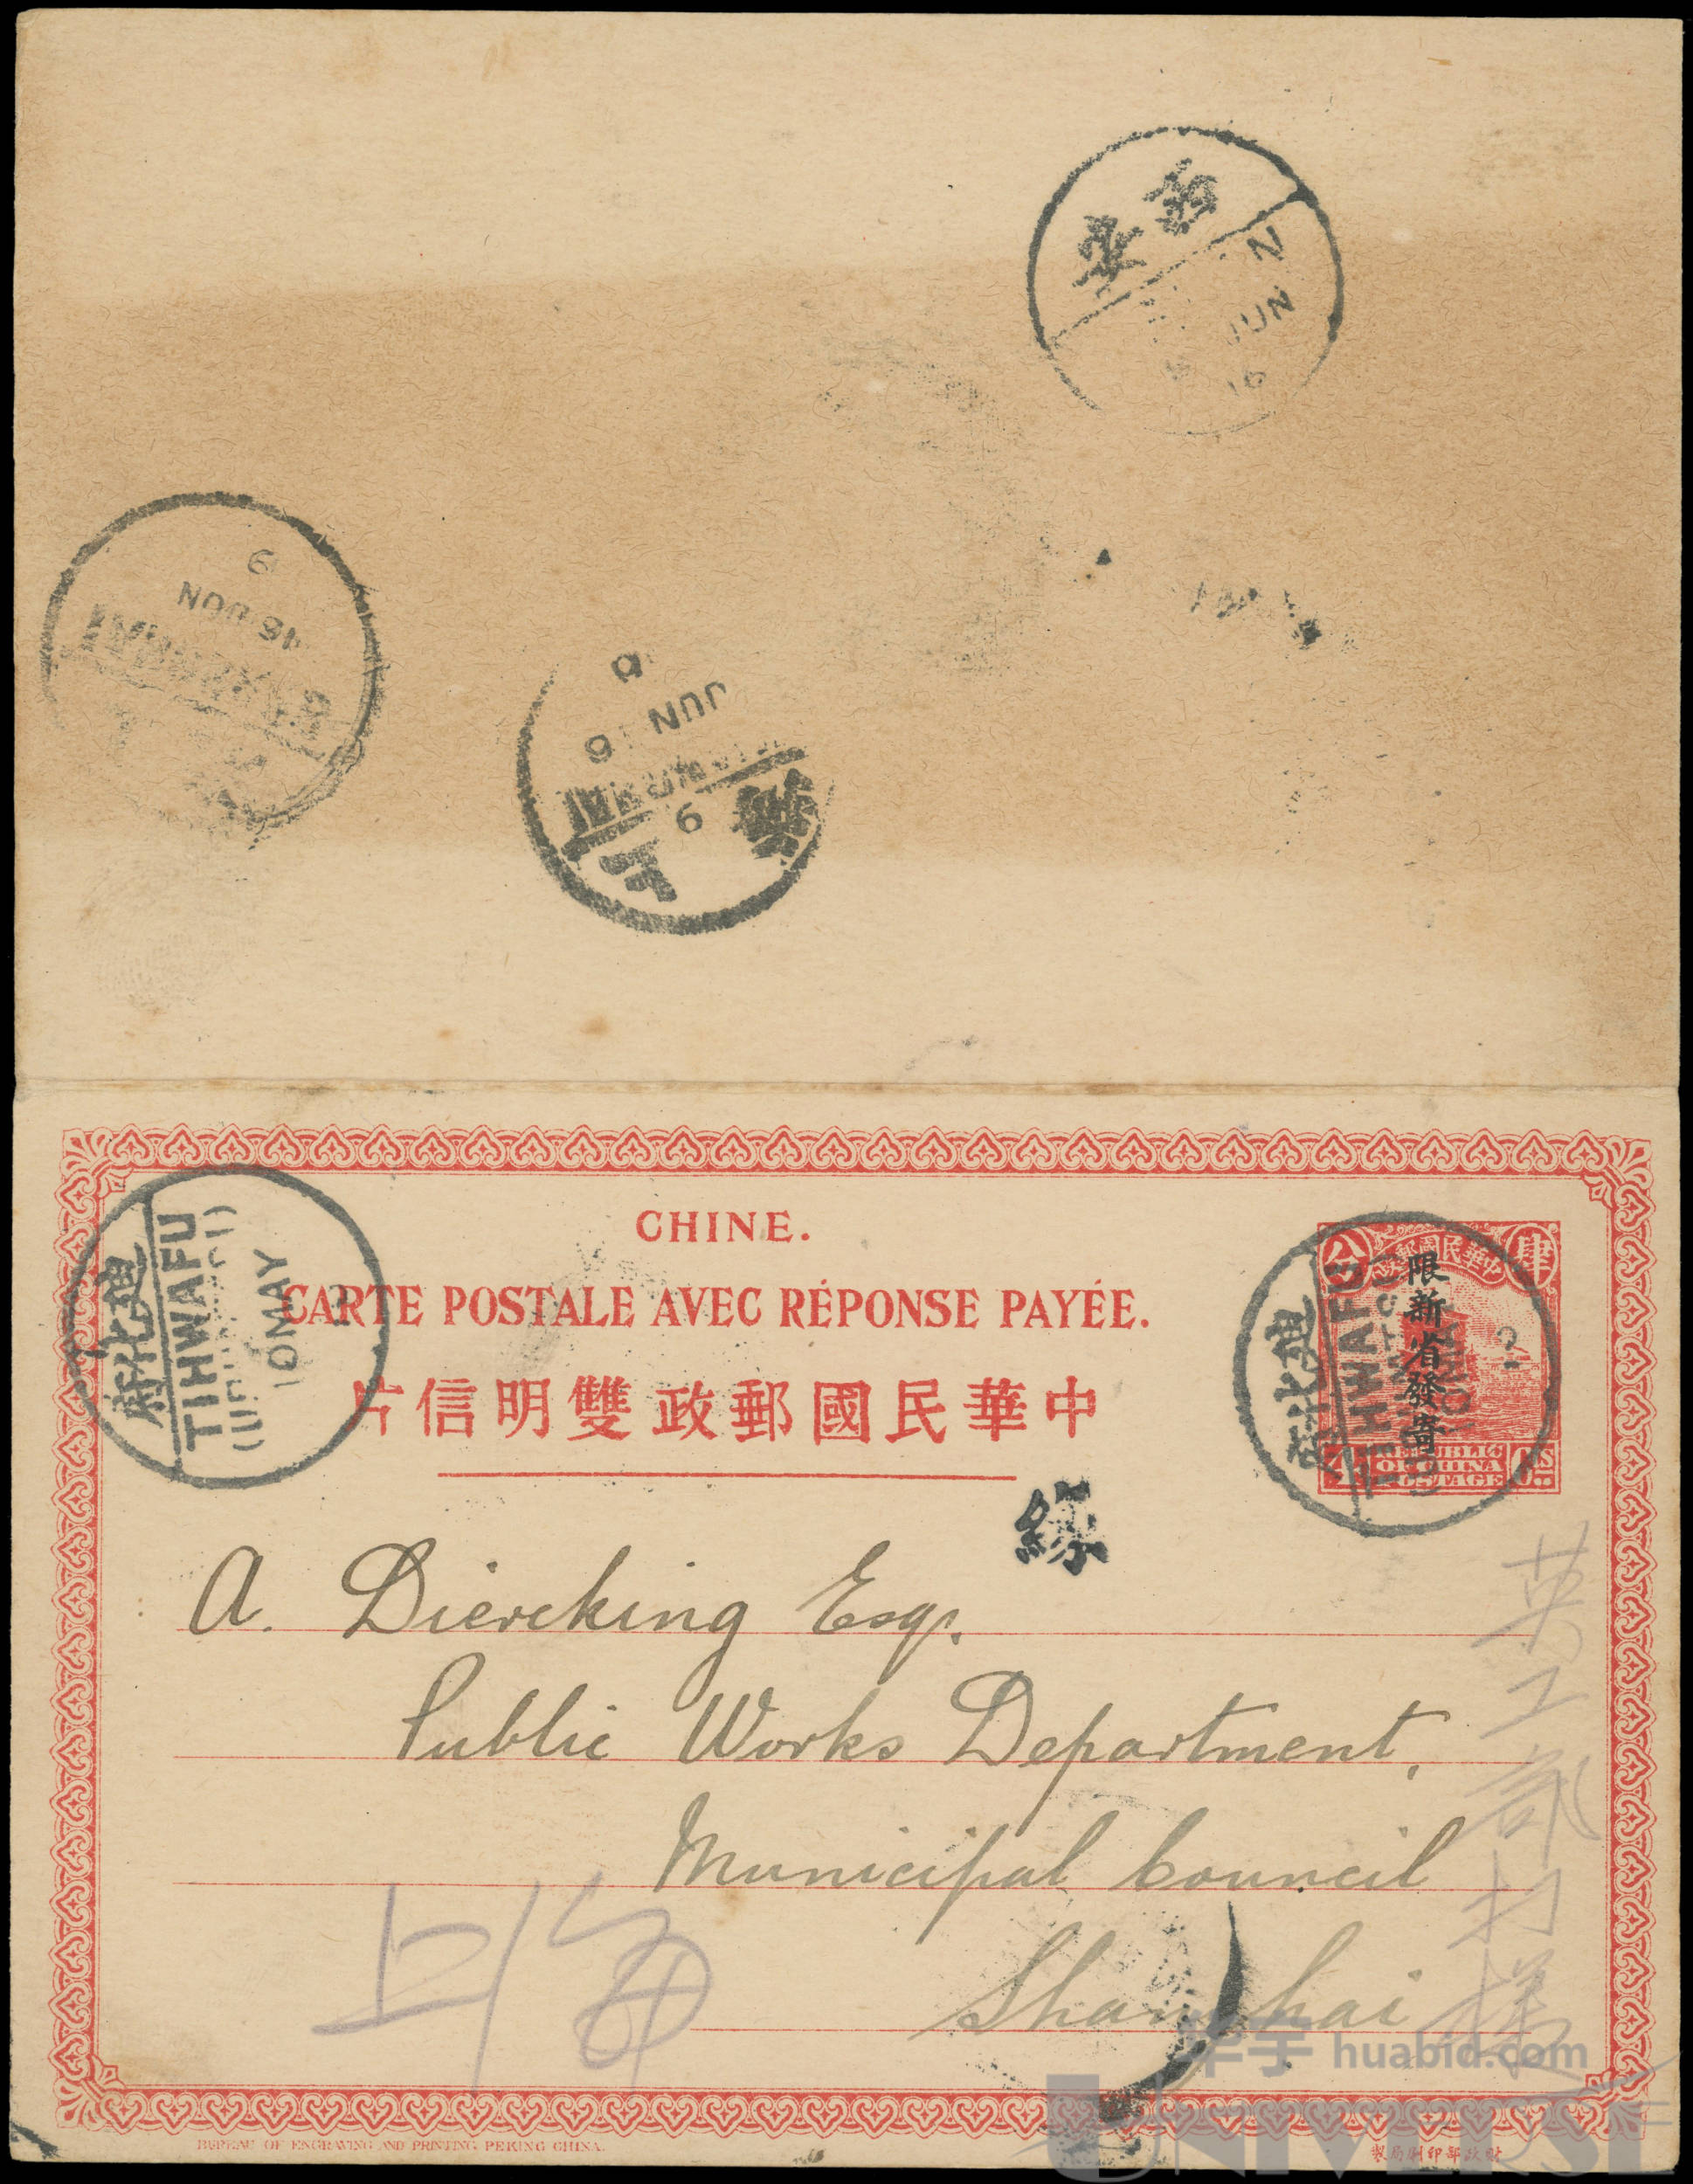 西安
JUN
16
JUN
上
JUN 16
9
CHINE.
CARTE POSTALE AVEC RÉPONSE PAYÉE.
片信明雙政郵國民華中
迪化府
TIHWAFU
10 MAY
迪化府
TIHWAFU
限新省發寄
分
肆
REPUBLIC
OF CHINA
POSTAGE
緣
A. Diercking Esq.
Public Works Department,
Municipal Council
Shanghai
上海
英工部打樣
华宇 huabid.com
UNIVERSE
BUREAU OF ENGRAVING AND PRINTING, PEKING CHINA.
製局刷印部政財